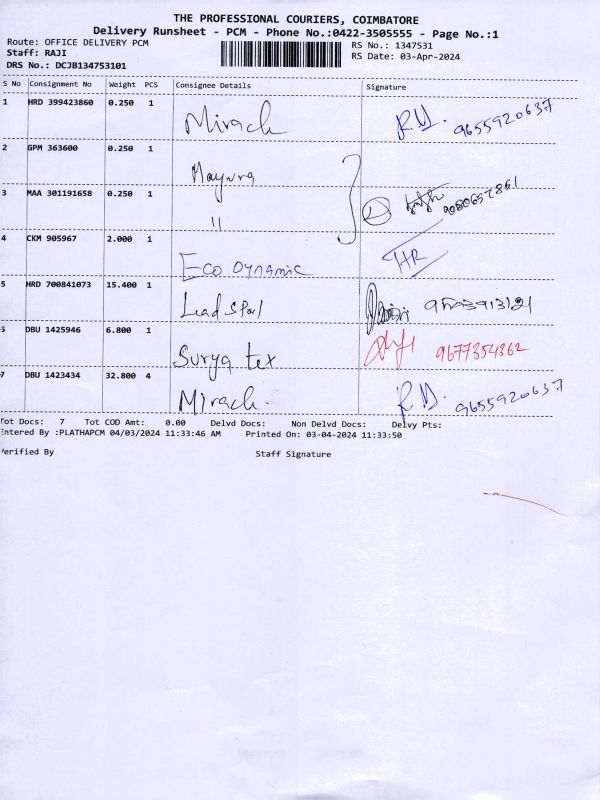 THE PROFESSIONAL COURIERS, COIMBATORE
Delivery Runsheet - PCM - Phone No.:0422-3505555 - Page No.:1
Route: OFFICE DELIVERY PCM RS No.: 1347531
Staff: RAJI RS Date: 03-Apr-2024
DRS No.: DCJB134753101
S No Consignment No Weight PCS Consignee Details Signature
1 HRD 399423860 0.250 1 Mirach R.M. 9655920637
2 GPM 363600 0.250 1 Mayura
3 MAA 301191658 0.250 1 11 9080657861
4 CKM 905967 2.000 1 Eco Dynamic HR
5 HRD 700841073 15.400 1 Lead Spal
DBU 1425946 6.800 1 Surya tex 9677354362
7 DBU 1423434 32.800 4 Mirach. R.M. 9655920637
Tot Docs: 7 Tot COD Amt: 0.00 Delvd Docs: Non Delvd Docs: Delvy Pts:
Entered By :PLATHAPCM 04/03/2024 11:33:46 AM Printed On: 03-04-2024 11:33:50
Verified By Staff Signature